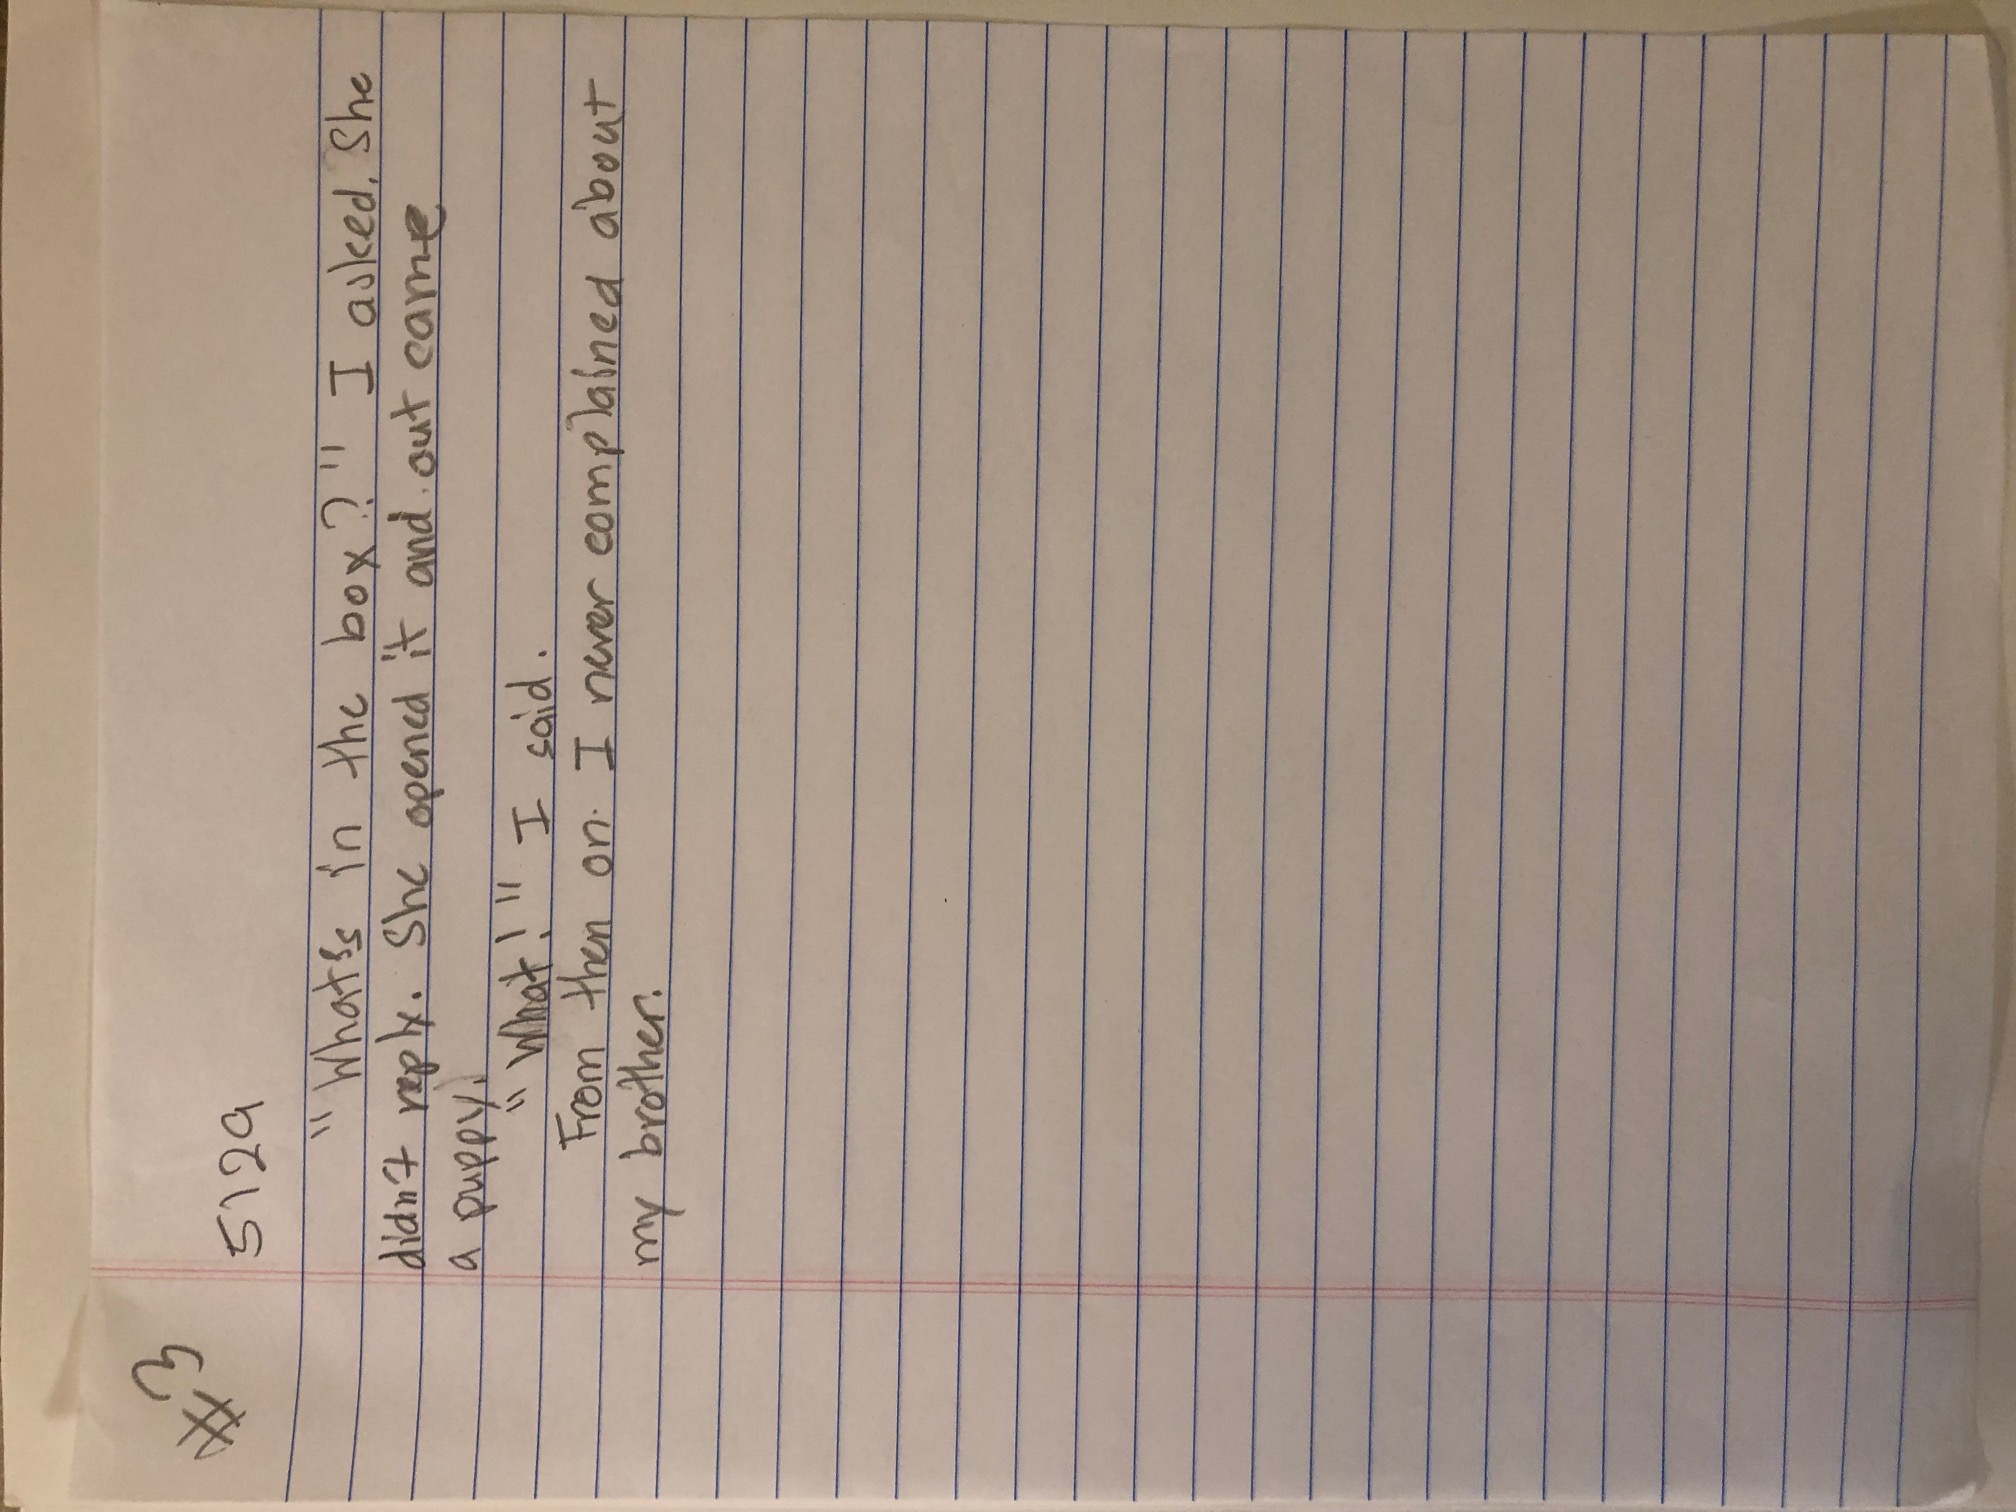 #3
5129
"What's in the box?" I asked. She
didn't reply. She opened it and out came
a puppy.
"What!" I said.
From then on. I never complained about
my brother.